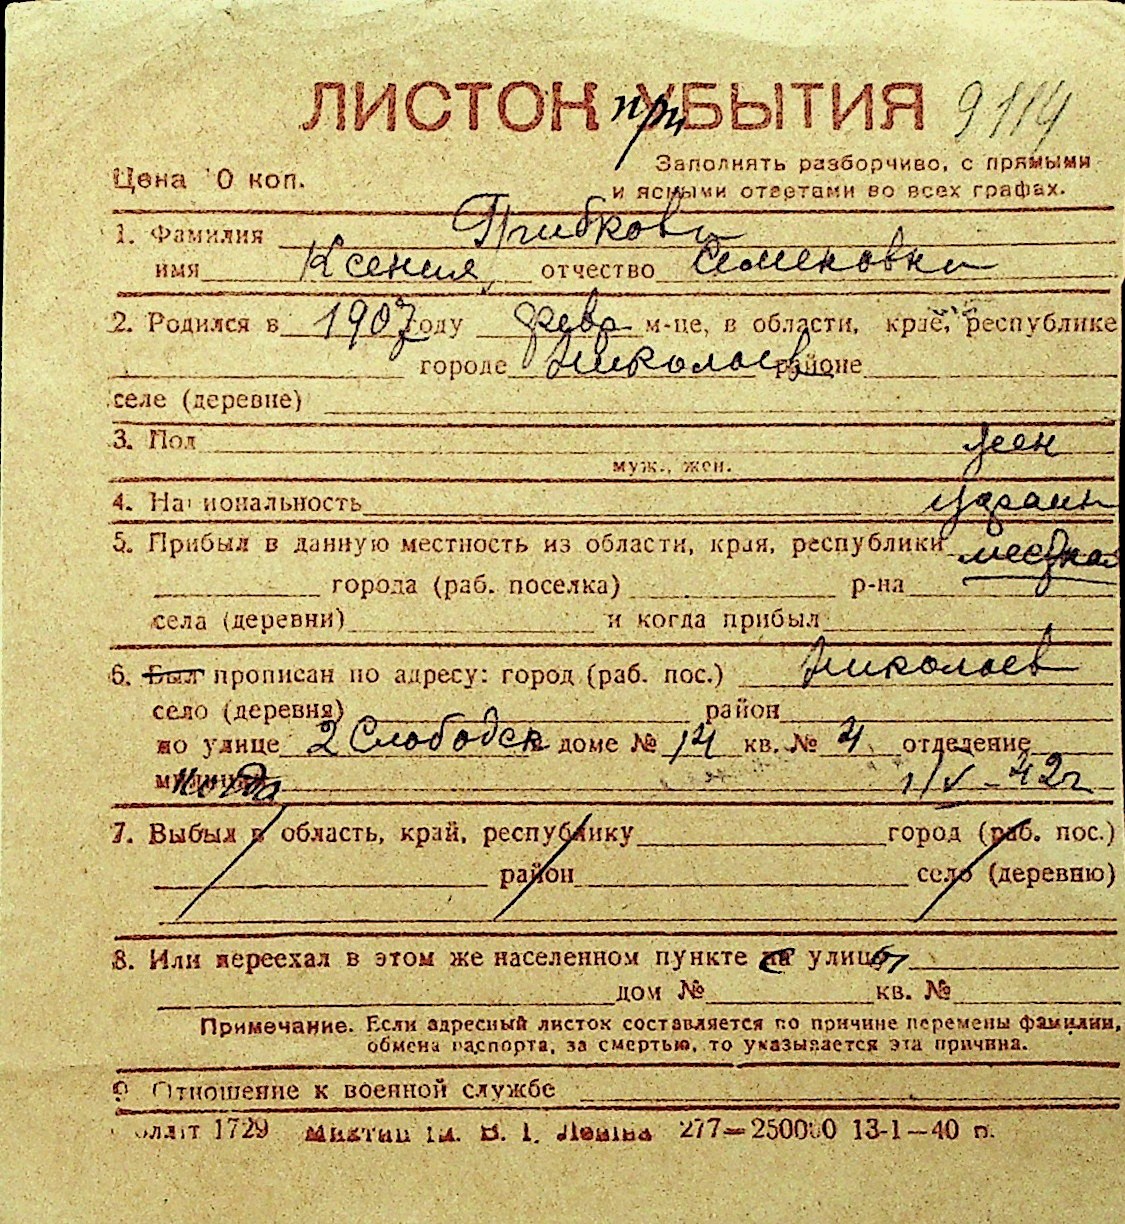 ЛИСТОК при УБЫТИЯ 9114
Цена 10 коп.
Заполнять разборчиво, с прямыми
и ясными ответами во всех графах.
1. Фамилия Грибкова
имя Ксения отчество Семеновна
2. Родился в 1907 году февр м-це, в области, крае, республике
городе Николаев районе
селе (деревне)
3. Пол жен
муж., жен.
4. Национальность украин
5. Прибыл в данную местность из области, края, республики местная
города (раб. поселка) р-на
села (деревни) и когда прибыл
6. Был прописан по адресу: город (раб. пос.) Николаев
село (деревня) район
по улице 2 Слободск доме № 14 кв. № 4 отделение
милиции когда 1/V-42г
7. Выбыл в область, край, республику город (раб. пос.)
район село (деревню)
8. Или переехал в этом же населенном пункте с улицы
дом № кв. №
Примечание. Если адресный листок составляется по причине перемены фамилии,
обмена паспорта, за смертью, то указывается эта причина.
9 Отношение к военной службе
1729 В. І. Леніна 277—250000 13-1—40 п.